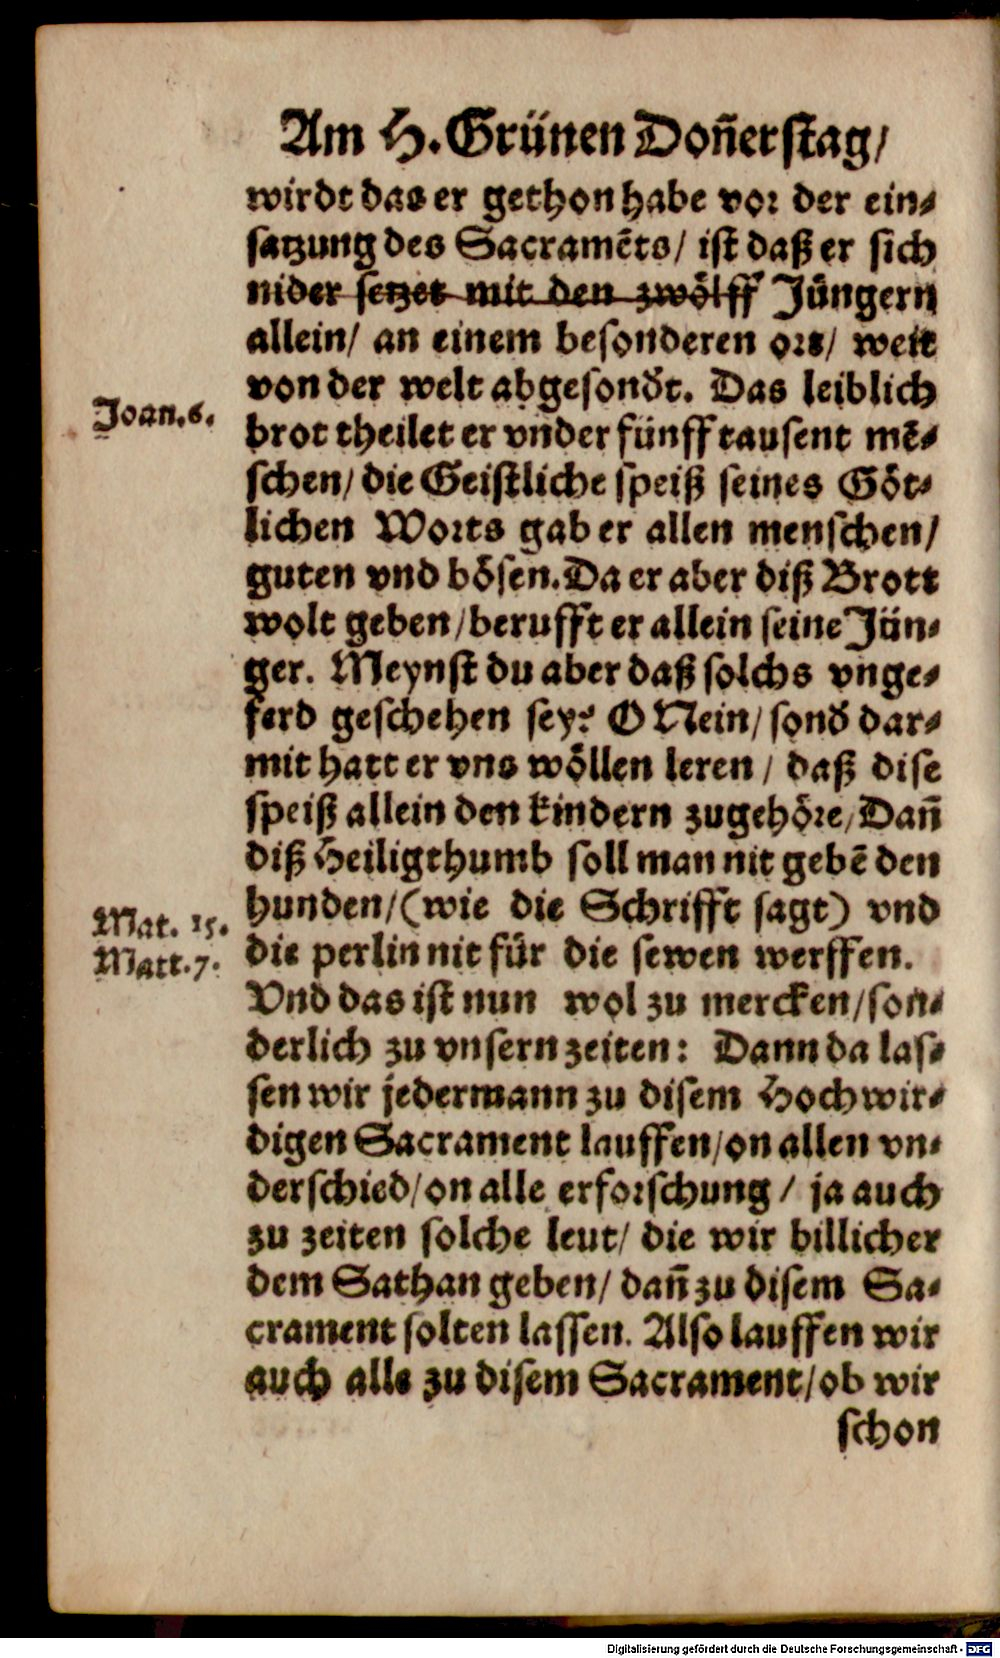 Am H. Grünen Doñerstag/
wirdt das er gethon habe vor der ein-
satzung des Sacramēts/ ist daß er sich
nider setzet mit den zwölff Jüngern
allein/ an einem besonderen ors/ weit
von der welt abgesondt. Das leiblich
Joan. 6.
brot theilet er vnder fünff tausent mē-
schen/ die Geistliche speiß seines Göt-
lichen Worts gab er allen menschen/
guten vnd bösen. Da er aber diß Brott
wolt geben/ berufft er allein seine Jün-
ger. Meynst du aber daß solchs vnge-
ferd geschehen sey? O Nein/ sond dar-
mit hatt er vns wöllen leren/ daß dise
speiß allein den kindern zugehöre/ Dañ
diß Heiligthumb soll man nit gebē den
Mat. 15.
hunden/ (wie die Schrifft sagt) vnd
Matt. 7.
die perlin nit für die sewen werffen.
Vnd das ist nun wol zu mercken/ son-
derlich zu vnsern zeiten: Dann da las-
sen wir jedermann zu disem Hochwir-
digen Sacrament lauffen/ on allen vn-
derschied/ on alle erforschung/ ja auch
zu zeiten solche leut/ die wir billicher
dem Sathan geben/ dañ zu disem Sa-
crament solten lassen. Also lauffen wir
auch alle zu disem Sacrament/ ob wir
schon
Digitalisierung gefördert durch die Deutsche Forschungsgemeinschaft - DFG